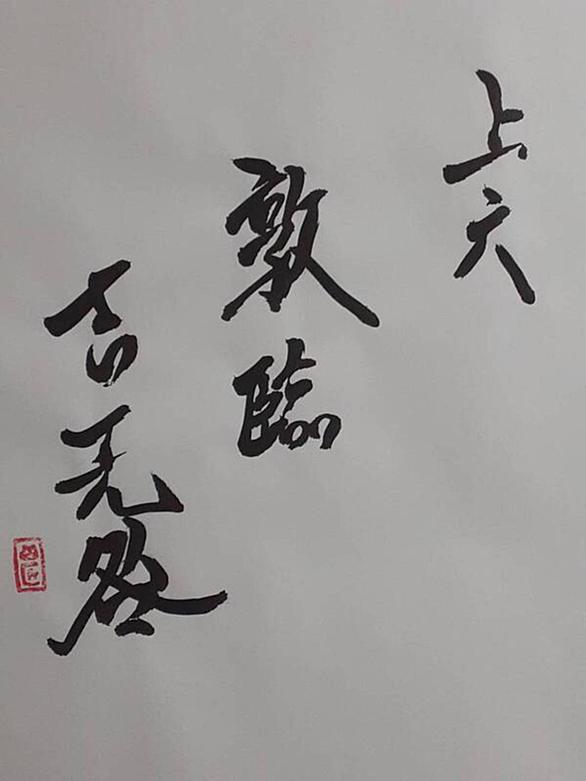 上六
敦臨
吉无咎